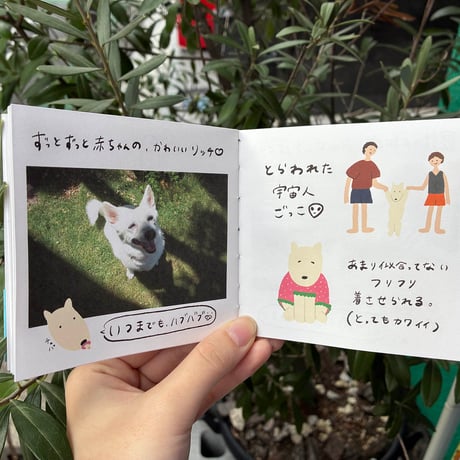 ずっとずっと赤ちゃんの、かわいいリッチ♡
いつまでも、バブバブ♡
とらわれた
宇宙人
ごっこ
あまり似合ってない
フリフリ
着させられる。
(とってもカワイイ)